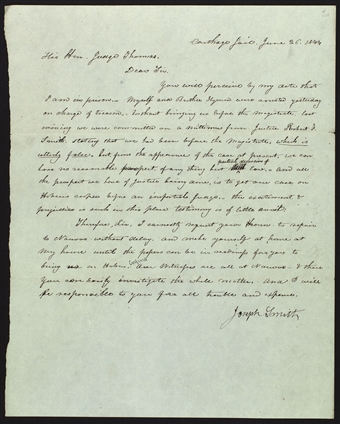 Carthage Jail, June 26, 1844
His Hon. Judge Thomas.
Dear Sir.
You will perceive by my date that
I am in prison. Myself and Brother Hyrum were arrested yesterday
on charge of treason. Without bringing us before the magistrate, last
evening we were committed on a mittimus from Justice Robert F.
Smith, stating that we had been before the Magistrate, which is
utterly false. but from the appearance of the case at present, we can
have no reasonable prospect of any thing but partial law. and all
the prospect we have of Justice being done, is to get our case on
Habeas corpus before an impartial judge. the excitement &
prejudice is such in this place testimony is of little avail.
Therefore, sir, I earnestly request your Honor to repair
to Nauvoo without delay, and make yourself at home at
my house until the papers can be in readiness for you to
bring us on Habeas Corpus. Our witnesses are all at Nauvoo. & there
you can easily investigate the whole matter. and I will
be responsible to you for all trouble and expense.
Joseph Smith